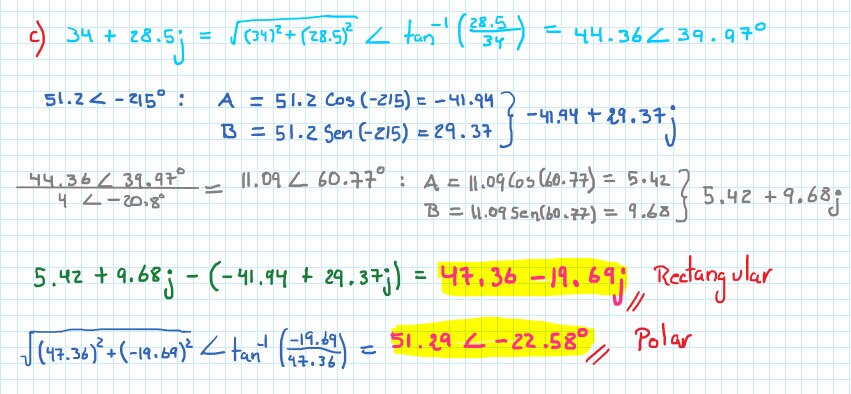 c) 34 + 28.5j = √((34)² + (28.5)²) ∠ tan⁻¹(28.5/34) = 44.36∠39.97°
51.2∠-215° : A = 51.2 Cos(-215) = -41.94
B = 51.2 Sen(-215) = 29.37 } -41.94 + 29.37j
44.36∠39.97° / 4∠-20.8° = 11.09∠60.77° : A = 11.09Cos(60.77) = 5.42
B = 11.09Sen(60.77) = 9.68 } 5.42 + 9.68j
5.42 + 9.68j - (-41.94 + 29.37j) = 47.36 - 19.69j // Rectangular
√((47.36)² + (-19.69)²) ∠ tan⁻¹(-19.69/47.36) = 51.29∠-22.58° // Polar